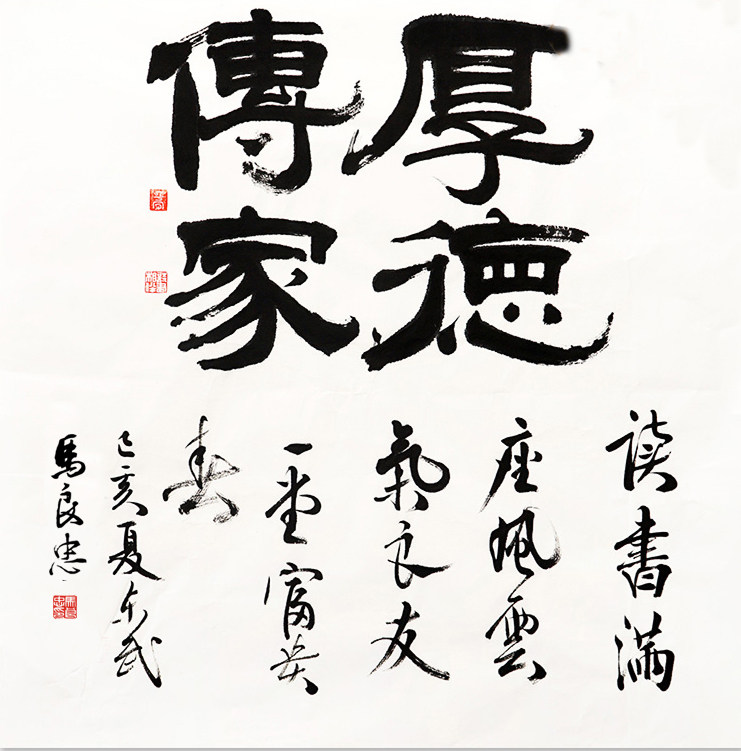 厚德
傳家
读書滿
座風雲
氣良友
一堂富贵
春
己亥夏东武
馬良忠